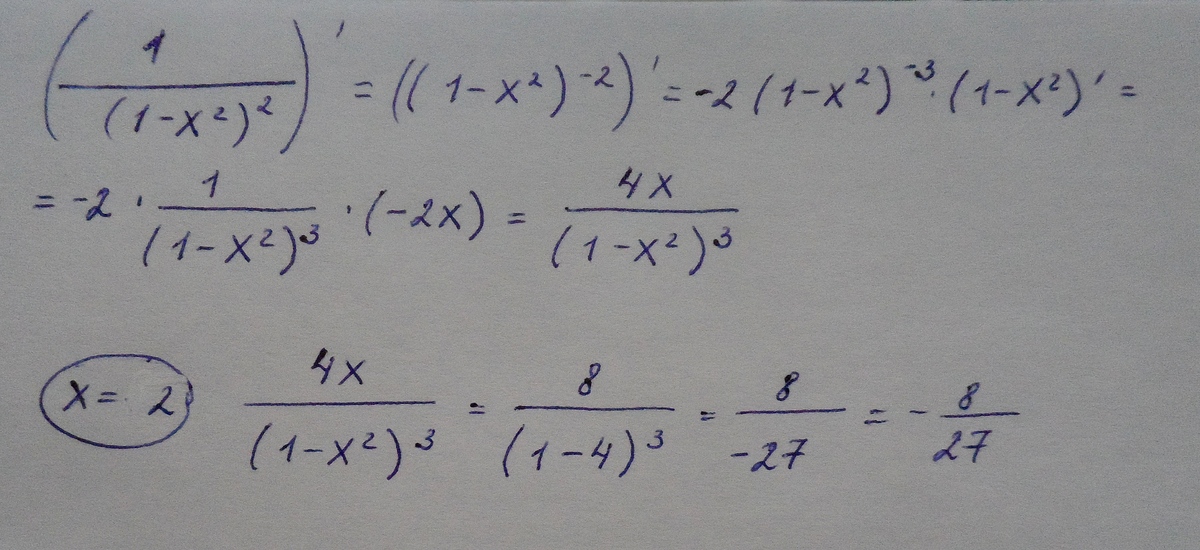 (1/(1-x²)²)' = ((1-x²)⁻²)' = -2(1-x²)⁻³·(1-x²)' =
= -2 · 1/(1-x²)³ · (-2x) = 4x/(1-x²)³
x = 2 4x/(1-x²)³ = 8/(1-4)³ = 8/-27 = - 8/27